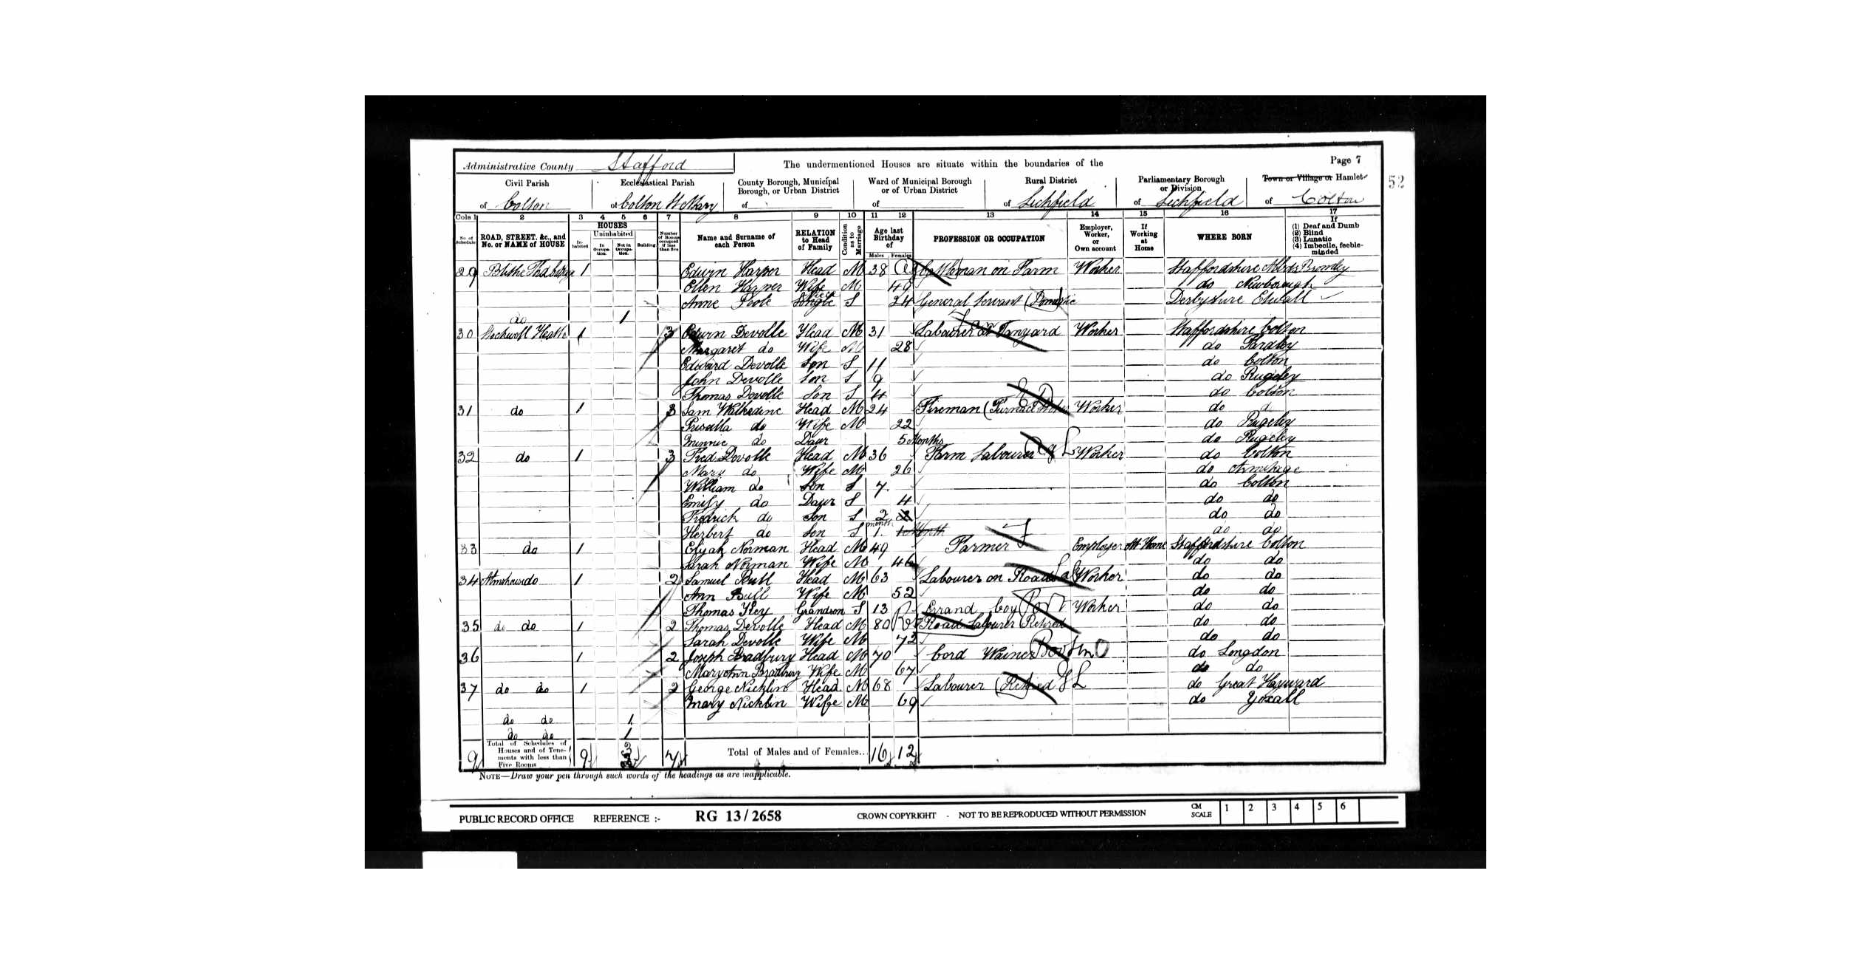 Administrative County Stafford
The undermentioned Houses are situate within the boundaries of the
Page 7
52
Civil Parish
of Colton
Ecclesiastical Parish
of Colton St Mary
County Borough, Municipal Borough, or Urban District
of
Ward of Municipal Borough or of Urban District
of
Rural District
of Lichfield
Parliamentary Borough or Division
of Lichfield
Town or Village or Hamlet
of Colton
Cols 1 2 3 4 5 6 7 8 9 10 11 12 13 14 15 16 17
No. of Schedule
ROAD, STREET, &c., and No. or NAME of HOUSE
HOUSES
Inhabited
Uninhabited
In Occupation
Not in Occupation
Building
Number of Rooms occupied if less than five
Name and Surname of each Person
RELATION to Head of Family
Condition as to Marriage
Age last Birthday of
Males Females
PROFESSION OR OCCUPATION
Employer, Worker, or Own account
If Working at Home
WHERE BORN
If
(1) Deaf and Dumb
(2) Blind
(3) Lunatic
(4) Imbecile, feeble-minded
29 Blithe 1 Edwin Harper Head M 38 Cattleman on Farm Worker Staffordshire Abbots Bromley
Ellen Harper Wife M 40 do Newborough
Anne Poole S 24 General Servant (Domestic Derbyshire Etwall
do 1
30 Stockwell Heath 1 3 Edwin Devolle Head M 31 Labourer at Tanyard Worker Staffordshire Colton
Margaret do Wife M 28 do
Edward Devolle Son S 11 do Colton
John Devolle Son S 9 do Rugeley
Thomas Devolle Son S 4 do Colton
31 do 1 3 Sam Head M 24 Fireman (Furnace Worker do
Priscilla do Wife M 22 do Rugeley
Minnie do Daur 5 Months do Rugeley
32 do 1 3 Fred Devolle Head M 36 Farm Labourer Worker do Colton
Mary do Wife M 26 do Armitage
William do Son S 7 do Colton
Emily do Daur S 4 do do
Fredrick do Son S 2 do do
Herbert do Son S 1 month do do
33 do 1 Elijah Norman Head M 49 Farmer Employer At Home Staffordshire Colton
Sarah Norman Wife M 46 do do
34 do 1 2 Samuel Bull Head M 63 Labourer on Roads Worker do do
Ann Bull Wife M 52 do do
Thomas Grandson S 13 Errand boy Worker do do
35 do do 1 2 Thomas Devolle Head M 80 Road Labourer Retired do do
Sarah Devolle Wife M 72 do do
36 1 2 Joseph Bradbury Head M 70 Cord Wainer do Longdon
Mary Ann Bradbury Wife M 67 do do
37 do do 1 2 George Nicklin Head M 68 Labourer (Retired do Great Hayward
Mary Nicklin Wife M 69 do Yoxall
do do 1
do do 1
9 Total of Schedules of Houses and of Tenements with less than Five Rooms 9 3 7 Total of Males and of Females... 16 12
NOTE—Draw your pen through such words of the headings as are inapplicable.
PUBLIC RECORD OFFICE REFERENCE :- RG 13/2658 CROWN COPYRIGHT - NOT TO BE REPRODUCED WITHOUT PERMISSION CM SCALE 1 2 3 4 5 6